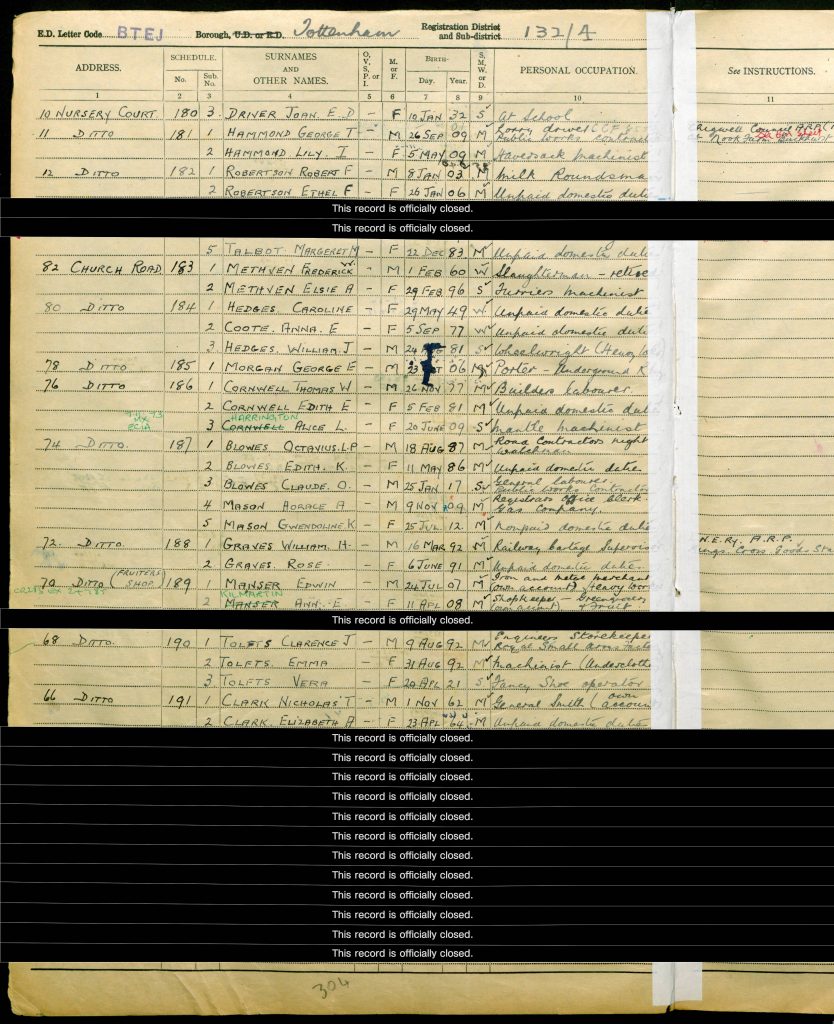 E.D. Letter Code BTEJ Borough, U.D. or R.D. Tottenham Registration District and Sub-district 132/A
ADDRESS. SCHEDULE. No. Sub. No. SURNAMES AND OTHER NAMES. O, V, S, P, or I. M. or F. BIRTH- Day. Year. S, M, W, or D. PERSONAL OCCUPATION. See INSTRUCTIONS.
1 2 3 4 5 6 7 8 9 10 11
10 NURSERY COURT 180 3 DRIVER JOAN E D F 10 JAN 32 S At School
11 DITTO 181 1 HAMMOND GEORGE T - M 26 SEP 09 M Lorry driver Public works contract Chigwell Council A.R.P.
2 HAMMOND LILY. I - F 5 MAY 09 M Haversack machinist
12 DITTO 182 1 ROBERTSON ROBERT F - M 8 JAN 03 M Milk Roundsma
2 ROBERTSON ETHEL F - F 26 JAN 06 M Unpaid domestic dutie
This record is officially closed.
This record is officially closed.
5 TALBOT MARGERET M - F 22 DEC 83 M Unpaid domestic dutie
82 CHURCH ROAD 183 1 METHVEN FREDERICK W. - M 1 FEB 60 W Slaughterman - retire
2 METHVEN ELSIE A - F 29 FEB 96 S Furriers machinist
80 DITTO 184 1 HEDGES. CAROLINE - F 29 MAY 49 W Unpaid domestic dutie
2 COOTE. ANNA. E - F 5 SEP 77 W Unpaid domestic dutie
3 HEDGES. WILLIAM. J - M 24 81 S Wheelwright (Heavy W
78 DITTO 185 1 MORGAN GEORGE E - M 23 06 M Porter - Underground R
76 DITTO 186 1 CORNWELL THOMAS W - M 26 NOV 77 M Builders labourer
2 CORNWELL EDITH E - F 5 FEB 81 M Unpaid domestic dutie
HARRINGTON
3 CORNWELL ALICE L. - F 20 JUNE 09 S Mantle machinist
74 DITTO. 187 1 BLOWES OCTAVIUS. L.P - M 18 AUG 87 M Road Contractors night watchman
2 BLOWES EDITH. K. - F 11 MAY 86 M Unpaid domestic dutie.
3 BLOWES CLAUDE. O. - M 25 JAN 17 S General labourer Public Works Contractor
4 MASON HORACE A - M 9 NOV 09 M Registrars office Clerk - Gas Company.
5 MASON GWENDOLINE K - F 25 JUL 12 M Unpaid domestic dutie
72 DITTO. 188 1 GRAVES WILLIAM. H. - M 16 MAR 92 M Railway Cartage Supervisor N.E.Ry. A.R.P. Kings Cross Goods Sta
2 GRAVES. ROSE. - F 6 JUNE 91 M Unpaid domestic dutie.
70 DITTO (FRUITERS SHOP.) 189 1 MANSER EDWIN - M 24 JUL 07 M Iron and metal merchant (own account) Heavy Wor
KILMARTIN
2 MANSER ANN. E - F 11 APL 08 M Shopkeeper - Greengrocery & Fruit (own account)
This record is officially closed.
68 DITTO. 190 1 TOLFTS CLARENCE J - M 9 AUG 92 M Engineers Storekeeper Royal Small Arms Facto
2 TOLFTS. EMMA - F 31 AUG 92 M Machinist (Underclothe
3 TOLFTS VERA - F 20 APL 21 S Fancy Shoe operator
66 DITTO 191 1 CLARK NICHOLAS T - M 1 NOV 62 M General Smith (own account
2 CLARK. ELIZABETH A - F 23 APL 64 M Unpaid domestic dutie
This record is officially closed.
This record is officially closed.
This record is officially closed.
This record is officially closed.
This record is officially closed.
This record is officially closed.
This record is officially closed.
This record is officially closed.
This record is officially closed.
This record is officially closed.
This record is officially closed.
This record is officially closed.
304